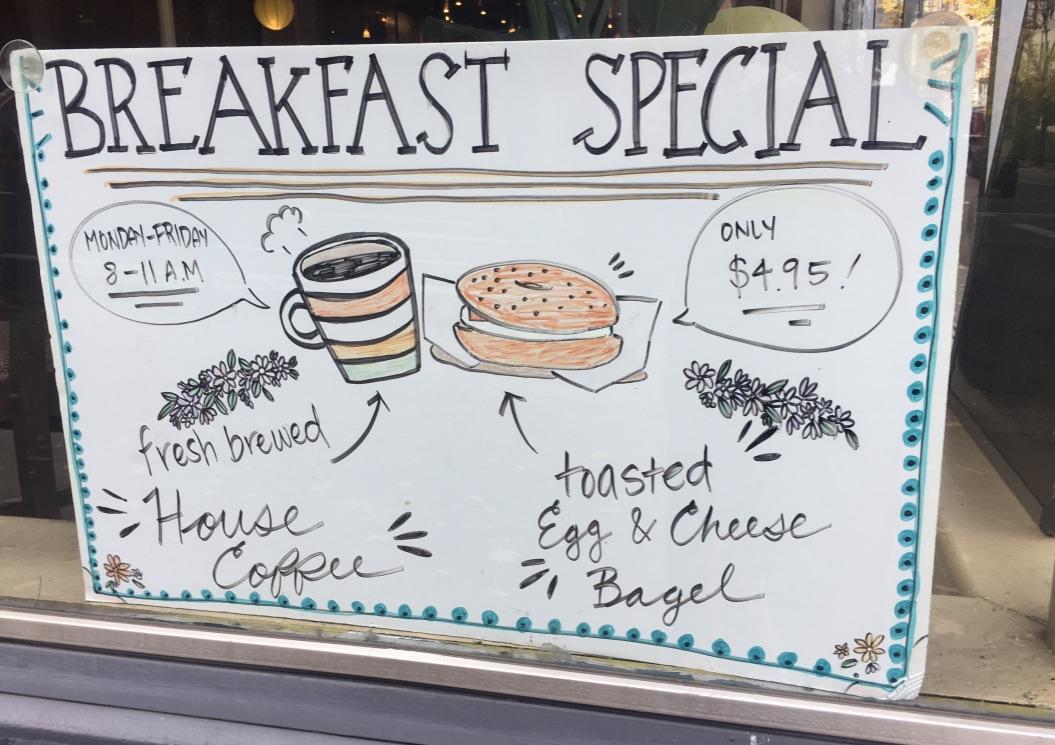 BREAKFAST SPECIAL
MONDAY-FRIDAY
8-11 A.M
ONLY
$4.95!
fresh brewed
House
Coffee
toasted
Egg & Cheese
Bagel